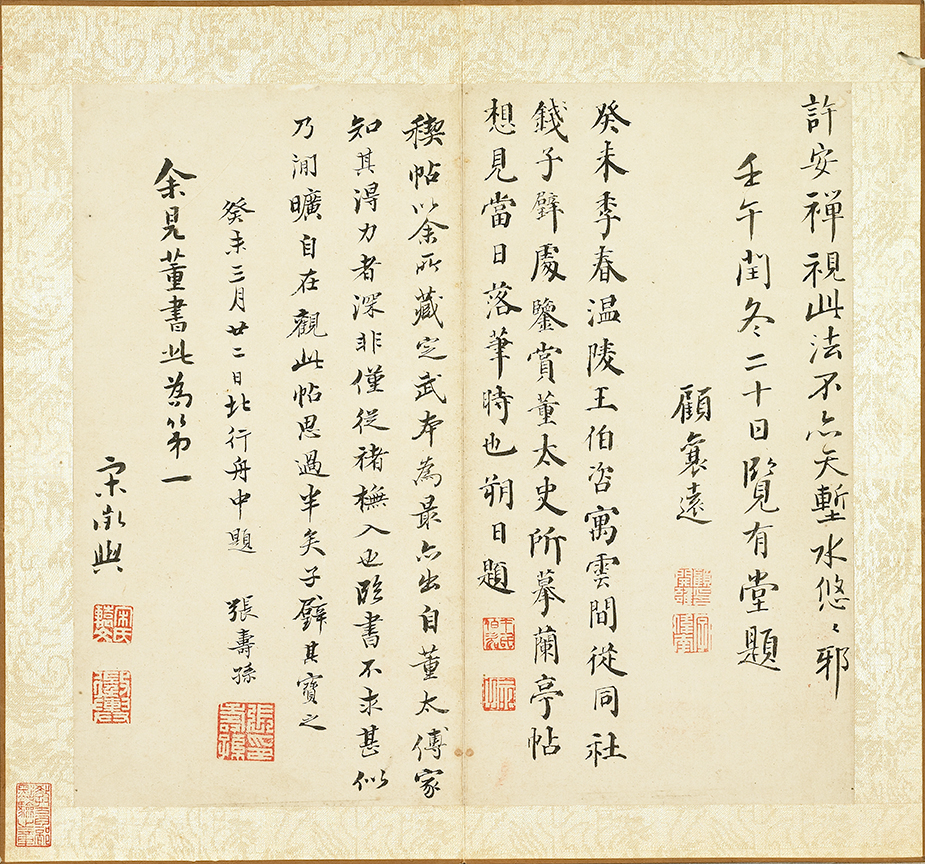 許安禪視此法不亦天塹水悠〻耶
壬午閏冬二十日覽有堂題
顧裒遠
癸未季春温陵王伯咨寓雲間從同社
錢子璧處鑒賞董太史所摹蘭亭帖
想見當日落筆時也朔日題
稧帖以余所藏定武本為最亦出自董太傅家
知其得力者深非僅從褚橅入也臨書不求甚似
乃閒曠自在觀此帖思過半矣子璧其寶之
癸未三月廿二日北行舟中題 張壽孫
余見董書此為第一
宋徵輿
張壽孫印